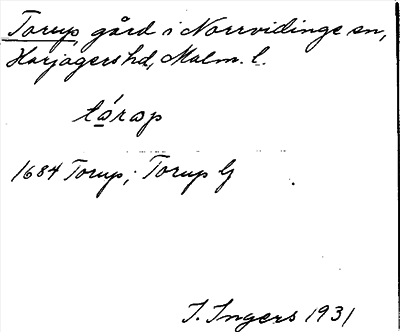 Torup, gård i Norrvidinge sn,
Harjagers hd, Malm. l.
tórap
1684 Torup; Torup G
I. Ingers 1931